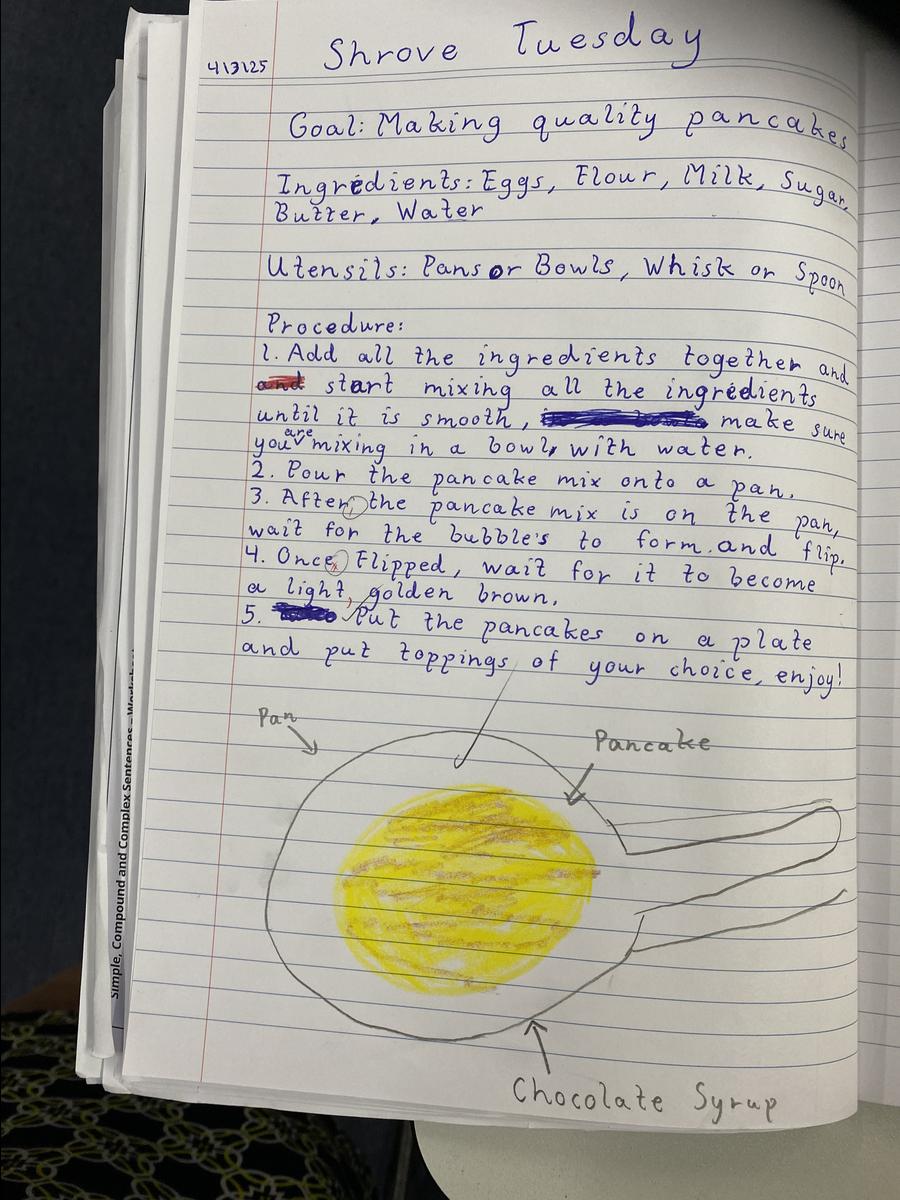 4/3/25
Shrove Tuesday
Goal: Making quality pancakes
Ingredients: Eggs, Flour, Milk, Sugar,
Butter, Water
Utensils: Pans or Bowls, Whisk or Spoon
Procedure:
1. Add all the ingredients together and
and start mixing all the ingredients
until it is smooth, make sure
you are mixing in a bowl, with water.
2. Pour the pancake mix onto a pan.
3. After, the pancake mix is on the pan,
wait for the bubble's to form and flip.
4. Once, Flipped, wait for it to become
a light, golden brown.
5. Put the pancakes on a plate
and put toppings of your choice, enjoy!
Pan
Pancake
Chocolate Syrup
Simple, Compound and Complex Sentences - Worksheet